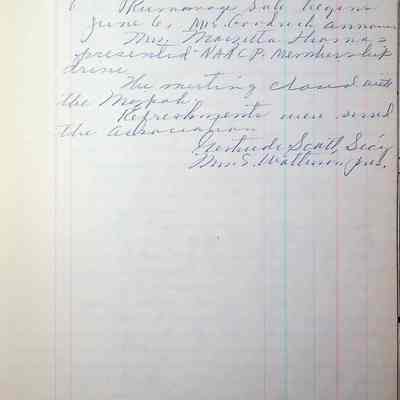 Rummage Sale begins
June 6, Mrs Goodrich announ
Mrs. Marzetta Thomas
presented NAACP. Membership
drive.
The meeting closed with
the Mezpah.
Refreshments were served
the association
Gertrude Scott, Sec'y
Mrs S. Watterson, pres.